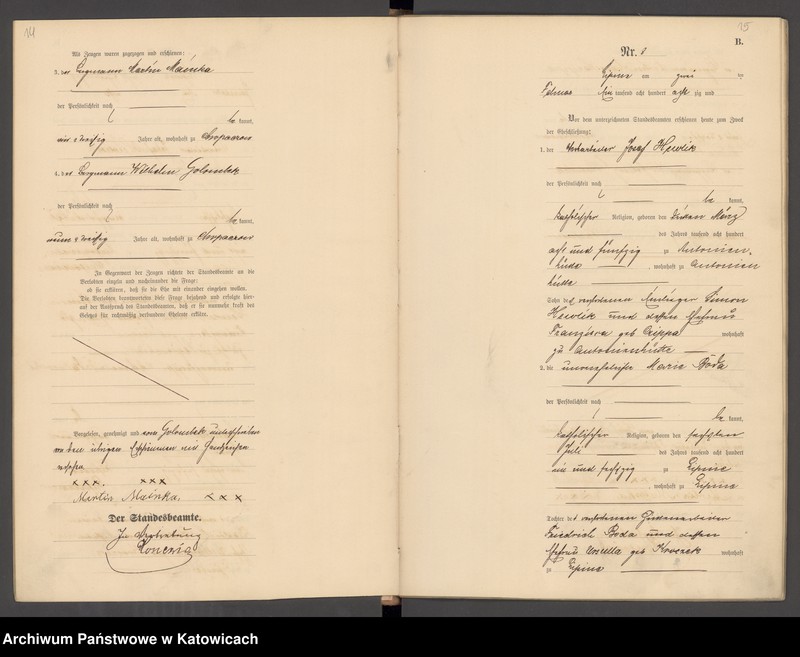 14
Mit Zeugen waren zugezogen und erschienen:
3. der Bergmann Martin Mainka
der Persönlichkeit nach
be kannt,
ein & dreißig Jahre alt, wohnhaft zu Chropaczow
4. der Bergmann Wilhelm Golombek
der Persönlichkeit nach
be kannt,
neun & dreißig Jahre alt, wohnhaft zu Chropaczow
In Gegenwart der Zeugen richtete der Standesbeamte an die
Verlobten einzeln und nacheinander die Frage:
ob sie erklären, daß sie die Ehe mit einander eingehen wollen.
Die Verlobten beantworteten diese Frage bejahend und erfolgte hier-
auf der Ausspruch des Standesbeamten, daß er sie nunmehr kraft des
Gesetzes für rechtmäßig verbundene Eheleute erkläre.
Vorgelesen, genehmigt und vom Golombek unterschrieben
von den übrigen Erschienenen mit Handzeichen
versehen
XXX. XXX
Martin Mainka. XXX
Der Standesbeamte.
In Vertretung
15
B.
Nr.
Lipine am zwei ten
Februar Ein tausend acht hundert acht zig und
Vor dem unterzeichneten Standesbeamten erschienen heute zum Zweck
der Eheschließung:
1. der Vorarbeiter Josef Hewlik
der Persönlichkeit nach
be kannt,
katholischer Religion, geboren den März
des Jahres tausend acht hundert
acht und fünfzig zu Antonien-
hütte, wohnhaft zu Antonien
hütte
Sohn des verstorbenen Simon
Hewlik und dessen Ehefrau
Franziska geb Czippa wohnhaft
zu Antonienhütte
2. die unverehelichte Marie Boda
der Persönlichkeit nach
be kannt,
katholischer Religion, geboren den sechsten
Juli des Jahres tausend acht hundert
ein und sechzig zu Lipine
, wohnhaft zu Lipine
Tochter des verstorbenen Grubenarbeiter
Friedrich Boda und dessen
Ehefrau geb wohnhaft
zu Lipine
Archiwum Państwowe w Katowicach